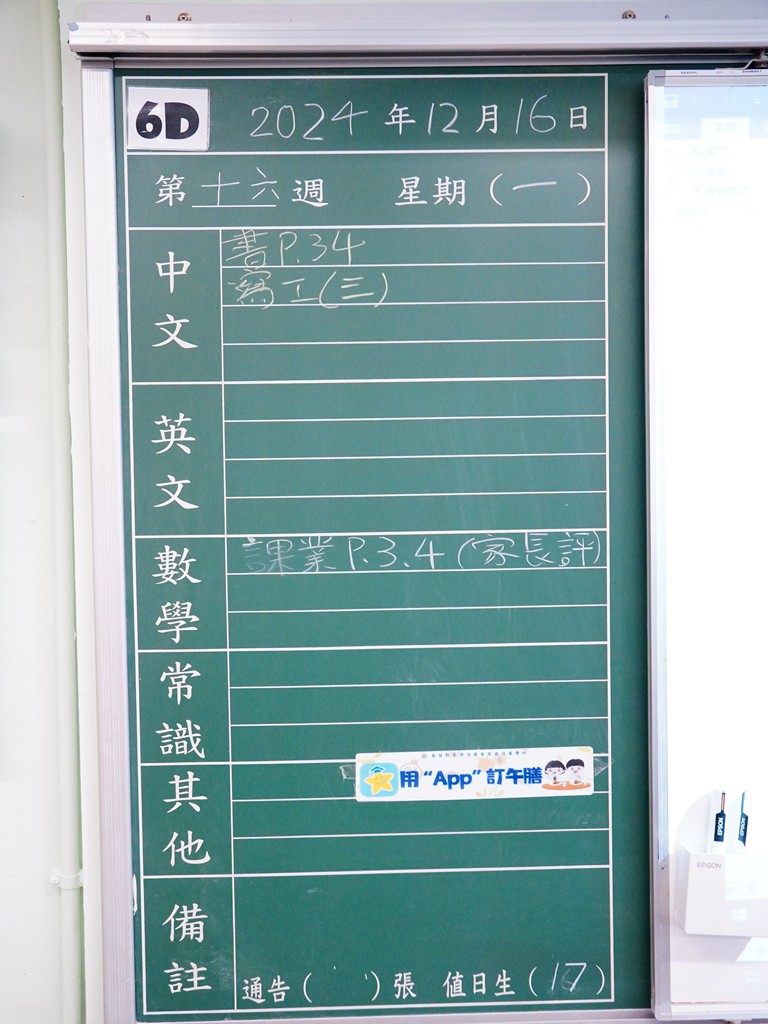 6D 2024年12月16日
第十六週 星期(一)
中文
書P.34
寫工(三)
英文
數學
課業P.3.4(家長評)
常識
其他
用“App”訂午膳
備註
通告( )張 值日生(17)
EPSON
EPSON
EPSON